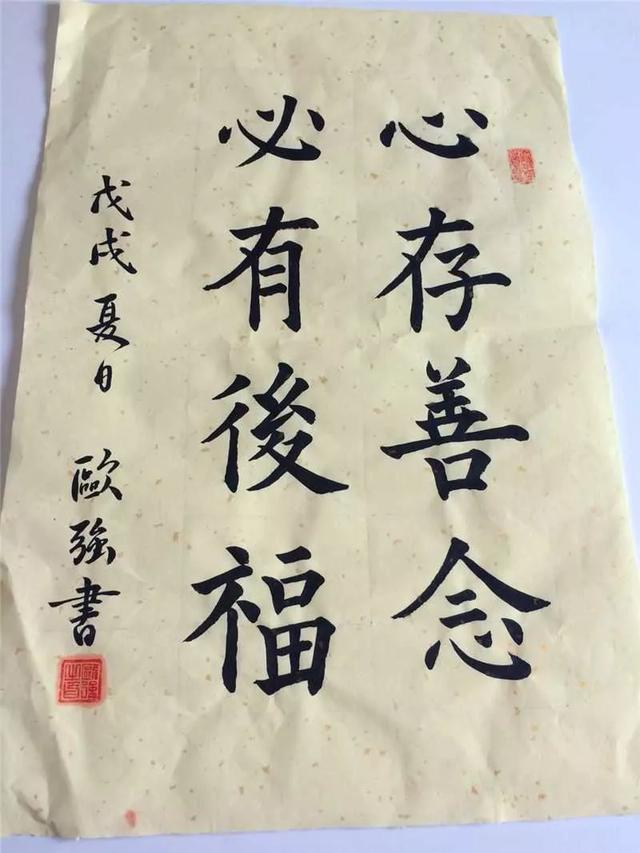 心存善念
必有後福
戊戌夏日 歐強書